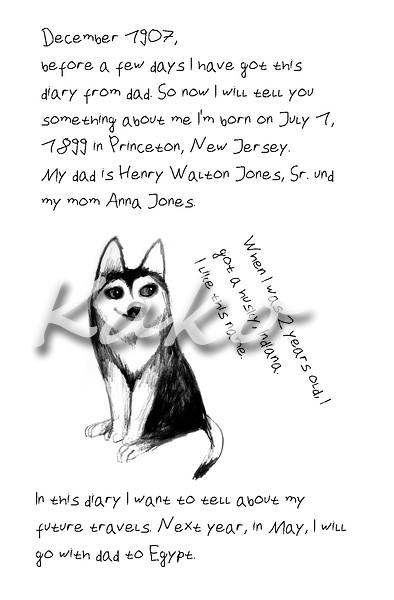 December 1907,
before a few days I have got this
diary from dad. So now I will tell you
something about me I'm born on July 1,
1899 in Princeton, New Jersey.
My dad is Henry Walton Jones, Sr. und
my mom Anna Jones.
When I was 2 years old, I
got a husky, Indiana.
I like this name.
Kakao
In this diary I want to tell about my
future travels. Next year, in May, I will
go with dad to Egypt.